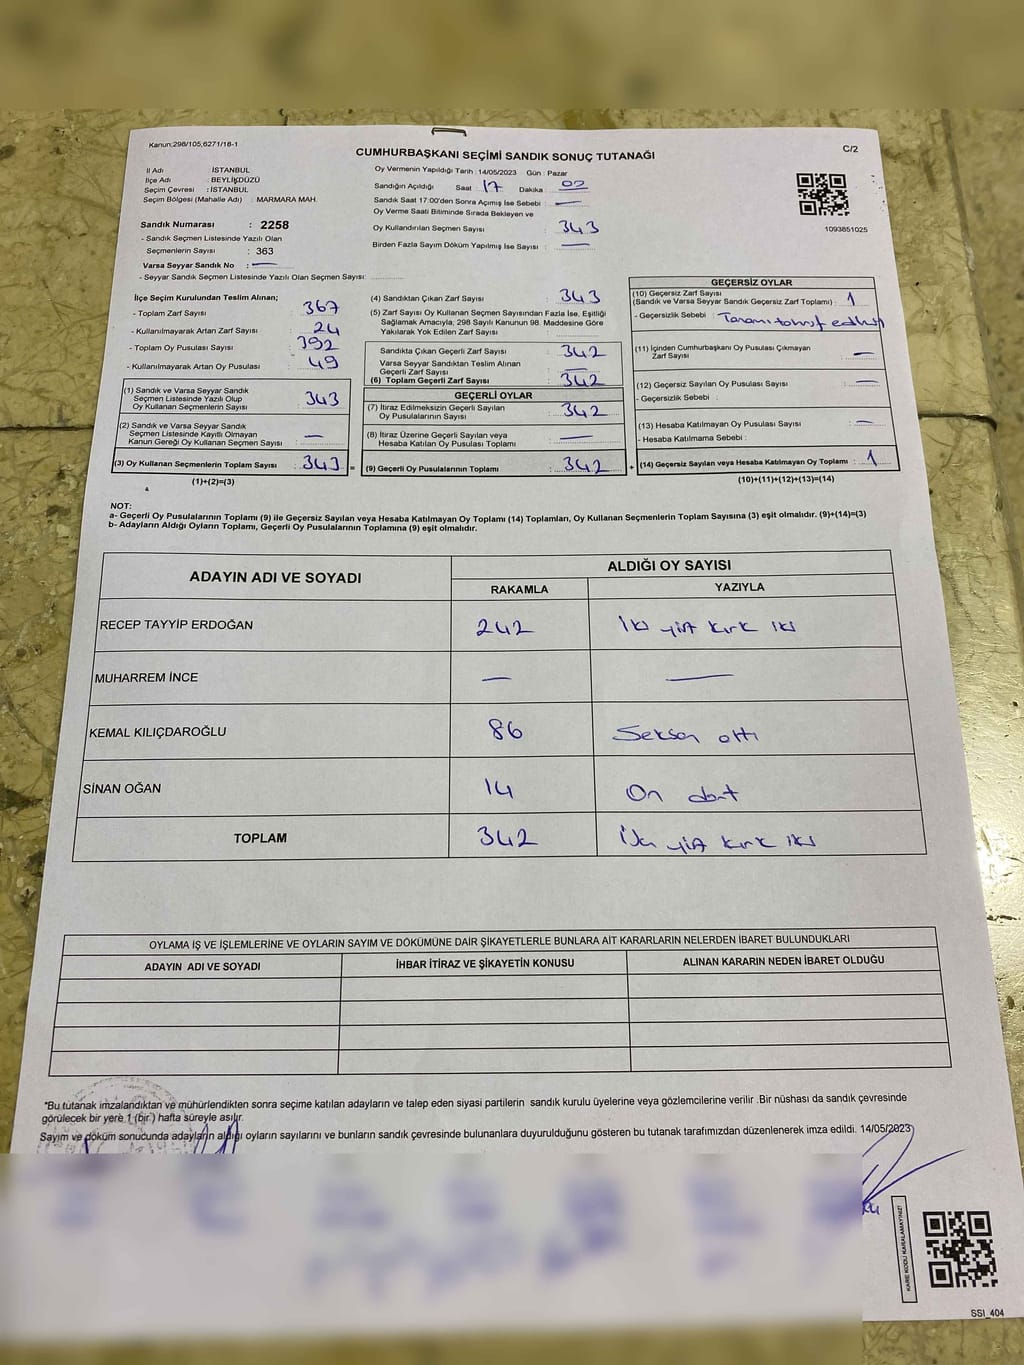 Kanun;298/105,6271/18-1
CUMHURBAŞKANI SEÇİMİ SANDIK SONUÇ TUTANAĞI
C/2
İl Adı : İSTANBUL
İlçe Adı : BEYLİKDÜZÜ
Seçim Çevresi : İSTANBUL
Seçim Bölgesi (Mahalle Adı) : MARMARA MAH.
Sandık Numarası : 2258
- Sandık Seçmen Listesinde Yazılı Olan
Seçmenlerin Sayısı : 363
Varsa Seyyar Sandık No : —
- Seyyar Sandık Seçmen Listesinde Yazılı Olan Seçmen Sayısı:
Oy Vermenin Yapıldığı Tarih : 14/05/2023 Gün : Pazar
Sandığın Açıldığı Saat 17 Dakika : 02
Sandık Saat 17:00'den Sonra Açımış İse Sebebi : —
Oy Verme Saati Bitiminde Sırada Bekleyen ve
Oy Kullandırılan Seçmen Sayısı : 343
Birden Fazla Sayım Döküm Yapılmış İse Sayısı : —
1093851025
İlçe Seçim Kurulundan Teslim Alınan;
- Toplam Zarf Sayısı : 367
- Kullanılmayarak Artan Zarf Sayısı : 24
- Toplam Oy Pusulası Sayısı : 392
- Kullanılmayarak Artan Oy Pusulası : 49
(1) Sandık ve Varsa Seyyar Sandık
Seçmen Listesinde Yazılı Olup
Oy Kullanan Seçmenlerin Sayısı : 343
(2) Sandık ve Varsa Seyyar Sandık
Seçmen Listesinde Kayıtlı Olmayan
Kanun Gereği Oy Kullanan Seçmen Sayısı : —
(3) Oy Kullanan Seçmenlerin Toplam Sayısı : 343 =
(1)+(2)=(3)
(4) Sandıktan Çıkan Zarf Sayısı : 343
(5) Zarf Sayısı Oy Kullanan Seçmen Sayısından Fazla İse, Eşitliği
Sağlamak Amacıyla, 298 Sayılı Kanunun 98. Maddesine Göre
Yakılarak Yok Edilen Zarf Sayısı :
Sandıkta Çıkan Geçerli Zarf Sayısı : 342
Varsa Seyyar Sandıktan Teslim Alınan
Geçerli Zarf Sayısı : —
(6) Toplam Geçerli Zarf Sayısı : 342
GEÇERLİ OYLAR
(7) İtiraz Edilmeksizin Geçerli Sayılan
Oy Pusulalarının Sayısı : 342
(8) İtiraz Üzerine Geçerli Sayılan veya
Hesaba Katılan Oy Pusulası Toplamı : —
(9) Geçerli Oy Pusulalarının Toplamı : 342 +
GEÇERSİZ OYLAR
(10) Geçersiz Zarf Sayısı
(Sandık ve Varsa Seyyar Sandık Geçersiz Zarf Toplamı) : 1
- Geçersizlik Sebebi :
(11) İçinden Cumhurbaşkanı Oy Pusulası Çıkmayan
Zarf Sayısı : —
(12) Geçersiz Sayılan Oy Pusulası Sayısı : —
- Geçersizlik Sebebi :
(13) Hesaba Katılmayan Oy Pusulası Sayısı : —
- Hesaba Katılmama Sebebi :
(14) Geçersiz Sayılan veya Hesaba Katılmayan Oy Toplamı : 1
(10)+(11)+(12)+(13)=(14)
NOT:
a- Geçerli Oy Pusulalarının Toplamı (9) ile Geçersiz Sayılan veya Hesaba Katılmayan Oy Toplamı (14) Toplamları, Oy Kullanan Seçmenlerin Toplam Sayısına (3) eşit olmalıdır. (9)+(14)=(3)
b- Adayların Aldığı Oyların Toplamı, Geçerli Oy Pusulalarının Toplamına (9) eşit olmalıdır.
ADAYIN ADI VE SOYADI
ALDIĞI OY SAYISI
RAKAMLA YAZIYLA
RECEP TAYYİP ERDOĞAN 242 İki yüz kırk iki
MUHARREM İNCE — —
KEMAL KILIÇDAROĞLU 86 Seksen altı
SİNAN OĞAN 14 On dört
TOPLAM 342 İki yüz kırk iki
OYLAMA İŞ VE İŞLEMLERİNE VE OYLARIN SAYIM VE DÖKÜMÜNE DAİR ŞİKAYETLERLE BUNLARA AİT KARARLARIN NELERDEN İBARET BULUNDUKLARI
ADAYIN ADI VE SOYADI İHBAR İTİRAZ VE ŞİKAYETİN KONUSU ALINAN KARARIN NEDEN İBARET OLDUĞU
*Bu tutanak imzalandıktan ve mühürlendikten sonra seçime katılan adayların ve talep eden siyasi partilerin sandık kurulu üyelerine veya gözlemcilerine verilir .Bir nüshası da sandık çevresinde
görülecek bir yere 1 (bir ) hafta süreyle asılır.
Sayım ve döküm sonucunda adayların aldığı oyların sayılarını ve bunların sandık çevresinde bulunanlara duyurulduğunu gösteren bu tutanak tarafımızdan düzenlenerek imza edildi. 14/05/2023
KARE KODU KARALAMAYINIZ!
SSI_404